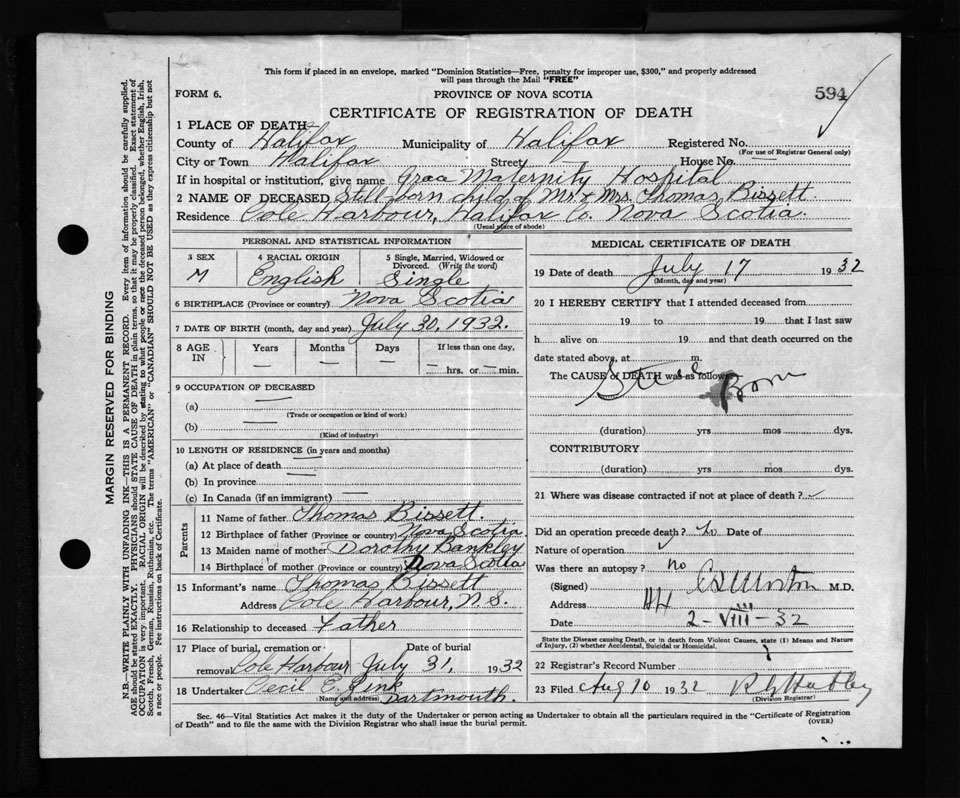 This form if placed in an envelope, marked "Dominion Statistics—Free, penalty for improper use, $300," and properly addressed
will pass through the Mail "FREE"
FORM 6.
PROVINCE OF NOVA SCOTIA
594
CERTIFICATE OF REGISTRATION OF DEATH
1 PLACE OF DEATH
County of Halifax Municipality of Halifax Registered No.
(For use of Registrar General only)
City or Town Halifax Street — House No. —
If in hospital or institution, give name Grace Maternity Hospital
2 NAME OF DECEASED Still born child of Mr. & Mrs. Thomas Bissett.
Residence Cole Harbour, Halifax Co. Nova Scotia.
(Usual place of abode)
PERSONAL AND STATISTICAL INFORMATION
3 SEX 4 RACIAL ORIGIN 5 Single, Married, Widowed or
Divorced. (Write the word)
M English Single
6 BIRTHPLACE (Province or country) Nova Scotia
7 DATE OF BIRTH (month, day and year) July 30, 1932.
8 AGE IN Years Months Days If less than one day,
— — — — hrs. or — min.
9 OCCUPATION OF DECEASED
(a) —
(Trade or occupation or kind of work)
(b) —
(Kind of industry)
10 LENGTH OF RESIDENCE (in years and months)
(a) At place of death —
(b) In province —
(c) In Canada (if an immigrant) —
Parents
11 Name of father Thomas Bissett.
12 Birthplace of father (Province or country) Nova Scotia
13 Maiden name of mother Dorothy Bankley
14 Birthplace of mother (Province or country) Nova Scotia
15 Informant's name Thomas Bissett
Address Cole Harbour, N.S.
16 Relationship to deceased Father
17 Place of burial, cremation or Date of burial
removal Cole Harbour July 31, 1932
18 Undertaker Cecil E. Zink
(Name and address) Dartmouth.
MEDICAL CERTIFICATE OF DEATH
19 Date of death July 17 1932
(Month, day and year)
20 I HEREBY CERTIFY that I attended deceased from
19 to 19 that I last saw
h alive on 19 and that death occurred on the
date stated above, at m.
The CAUSE of DEATH was as follows
Still Born
(duration) yrs mos dys.
CONTRIBUTORY
(duration) yrs mos dys.
21 Where was disease contracted if not at place of death?
Did an operation precede death? no Date of
Nature of operation
Was there an autopsy? no
(Signed) M.D.
Address
Date 2-VIII-32
State the Disease causing Death, or in death from Violent Causes, state (1) Means and Nature
of Injury, (2) whether Accidental, Suicidal or Homicidal.
22 Registrar's Record Number
23 Filed Aug 10 1932
(Division Registrar)
Sec. 46—Vital Statistics Act makes it the duty of the Undertaker or person acting as Undertaker to obtain all the particulars required in the "Certificate of Registration
of Death" and to file the same with the Division Registrar who shall issue the burial permit.
(OVER)
MARGIN RESERVED FOR BINDING
N.B.—WRITE PLAINLY WITH UNFADING INK—THIS IS A PERMANENT RECORD. Every item of information should be carefully supplied.
AGE should be stated EXACTLY. PHYSICIANS should STATE CAUSE OF DEATH in plain terms, so that it may be properly classified. Exact statement of
OCCUPATION is very important. RACIAL ORIGIN will be described by stating to what people or race the deceased person belonged, whether English, Irish,
Scotch, French, German, Russian, Ruthenian, etc. The terms "AMERICAN" or "CANADIAN" SHOULD NOT BE USED as they express citizenship but not
a race or people. Fee instructions on back of Certificate.